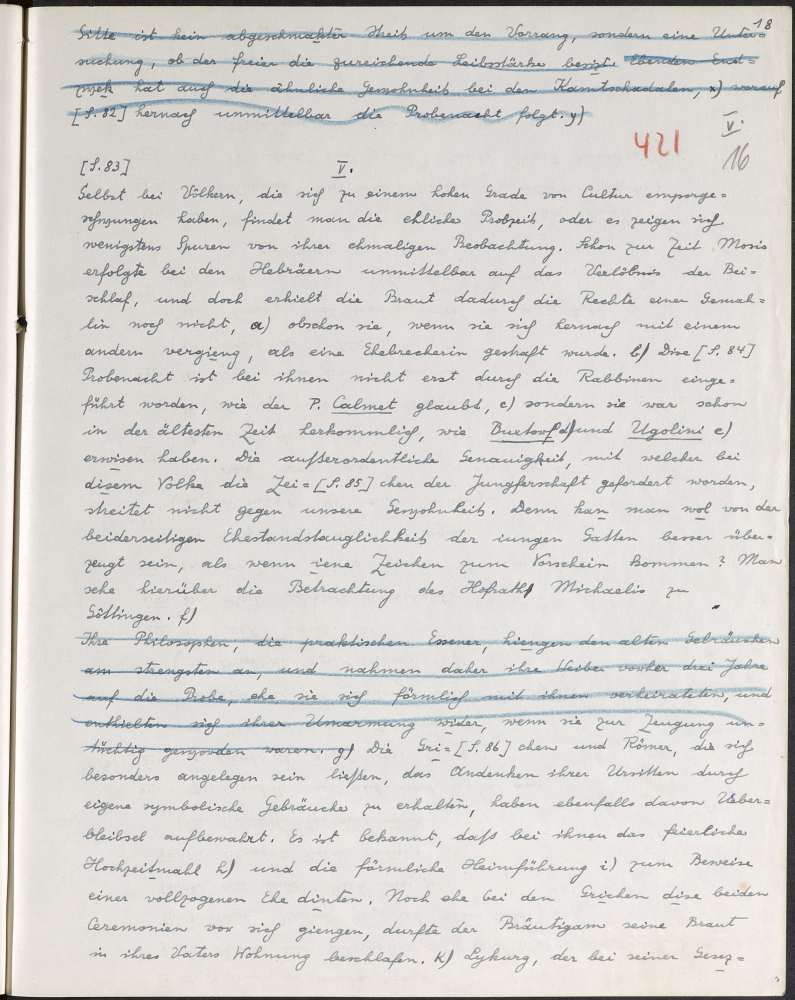 18
Sitte ist kein abgeschmakter Streit um den Vorrang, sondern eine Unter=
suchung, ob der freier die zureichende Leibsstärke besizt. Ebenden End=
zwek hat auch die ähnliche Gewohnheit bei den Kamtschadalen, x) worauf
[S. 82] hernach unmittelbar die Probenacht folgt. y)
421
V.
16
[S. 83] V.
Selbst bei Völkern, die sich zu einem hohen Grade von Cultur emporge=
schwungen haben, findet man die ehliche Probzeit, oder es zeigen sich
wenigstens Spuren von ihrer ehmaligen Beobachtung. Schon zur Zeit Mosis
erfolgte bei den Hebräern unmittelbar auf das Verlöbnis der Bei=
schlaf, und doch erhielt die Braut dadurch die Rechte einer Gemah=
lin noch nicht, a) obschon sie, wenn sie sich hernach mit einem
andern vergieng, als eine Ehebrecherin gestraft wurde. b) Dise [S. 84]
Probenacht ist bei ihnen nicht erst durch die Rabbinen einge=
führt worden, wie der P. Calmet glaubt, c) sondern sie war schon
in der ältesten Zeit herkommlich, wie Buxtorf d) und Ugolini e)
erwisen haben. Die außerordentliche Genauigkeit, mit welcher bei
disem Volke die Zei= [S. 85] chen der Jungferschaft gefordert worden,
streitet nicht gegen unsere Gewohnheit. Denn kan man wol von der
beiderseitigen Ehestandstauglichkeit der iungen Gatten besser über=
zeugt sein, als wenn iene Zeichen zum Vorschein kommen? Man
sehe hierüber die Betrachtung des Hofrath Michaelis zu
Göttingen. f)
Ihre Philosophen, die praktischen Essener, hiengen den alten Gebräuchen
am strengsten an, und nahmen daher ihre Weiber vorher drei Jahre
auf die Probe, ehe sie sich förmlich mit ihnen verheirateten, und
enthielten sich ihrer Umarmung wider, wenn sie zur Zeugung un=
tüchtig geworden waren. g) Die Gri= [S. 86] chen und Römer, die sich
besonders angelegen sein ließen, das Andenken ihrer Ursitten durch
eigene symbolische Gebräuche zu erhalten, haben ebenfalls davon Ueber=
bleibsel aufbewahrt. Es ist bekannt, daß bei ihnen das feierliche
Hochzeitmahl h) und die förmliche Heimführung i) zum Beweise
einer vollzogenen Ehe dinten. Noch ehe bei den Grichen dise beiden
Ceremonien vor sich giengen, durfte der Bräutigam seine Braut
in ihres Vaters Wohnung beschlafen. k) Lykurg, der bei seiner Gesez=